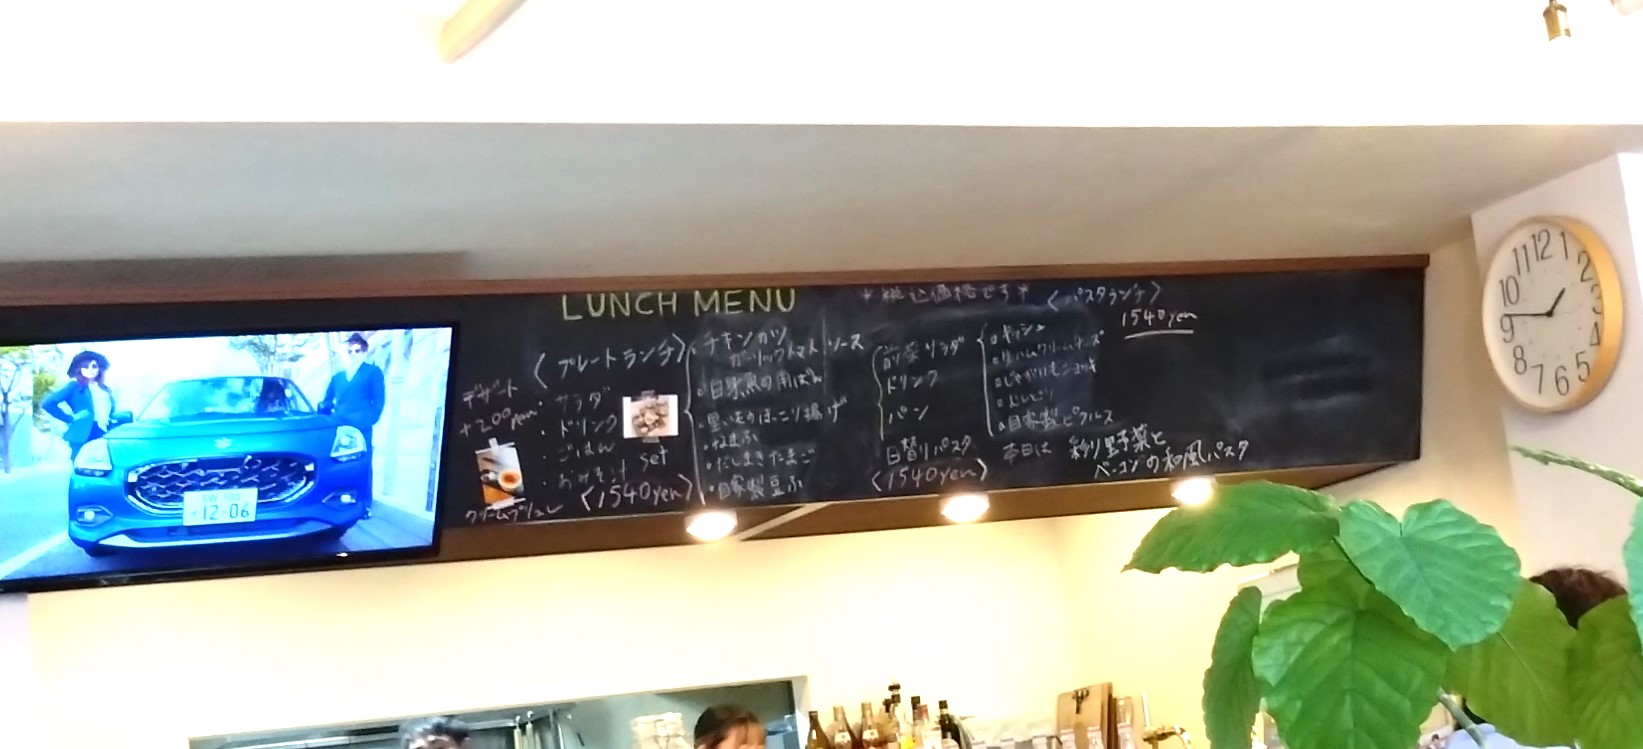 LUNCH MENU
*税込価格です*
〈プレートランチ〉
デザート
+200yen
クリームブリュレ
・サラダ
・ドリンク
・ごはん
・おみそ汁
set
〈1540yen〉
・チキンカツ
ガーリックトマトソース
・里いものほっこり揚げ
・なまふ
・だしまきたまご
・自家製豆ふ
〈パスタランチ〉
1540yen
前菜サラダ
ドリンク
パン
日替りパスタ
〈1540yen〉
・キッシュ
・生ハムクリームチーズ
・自家製ピクルス
本日は 彩り野菜と
ベーコンの和風パスタ
12-06
12
1
2
3
4
5
6
7
8
9
10
11